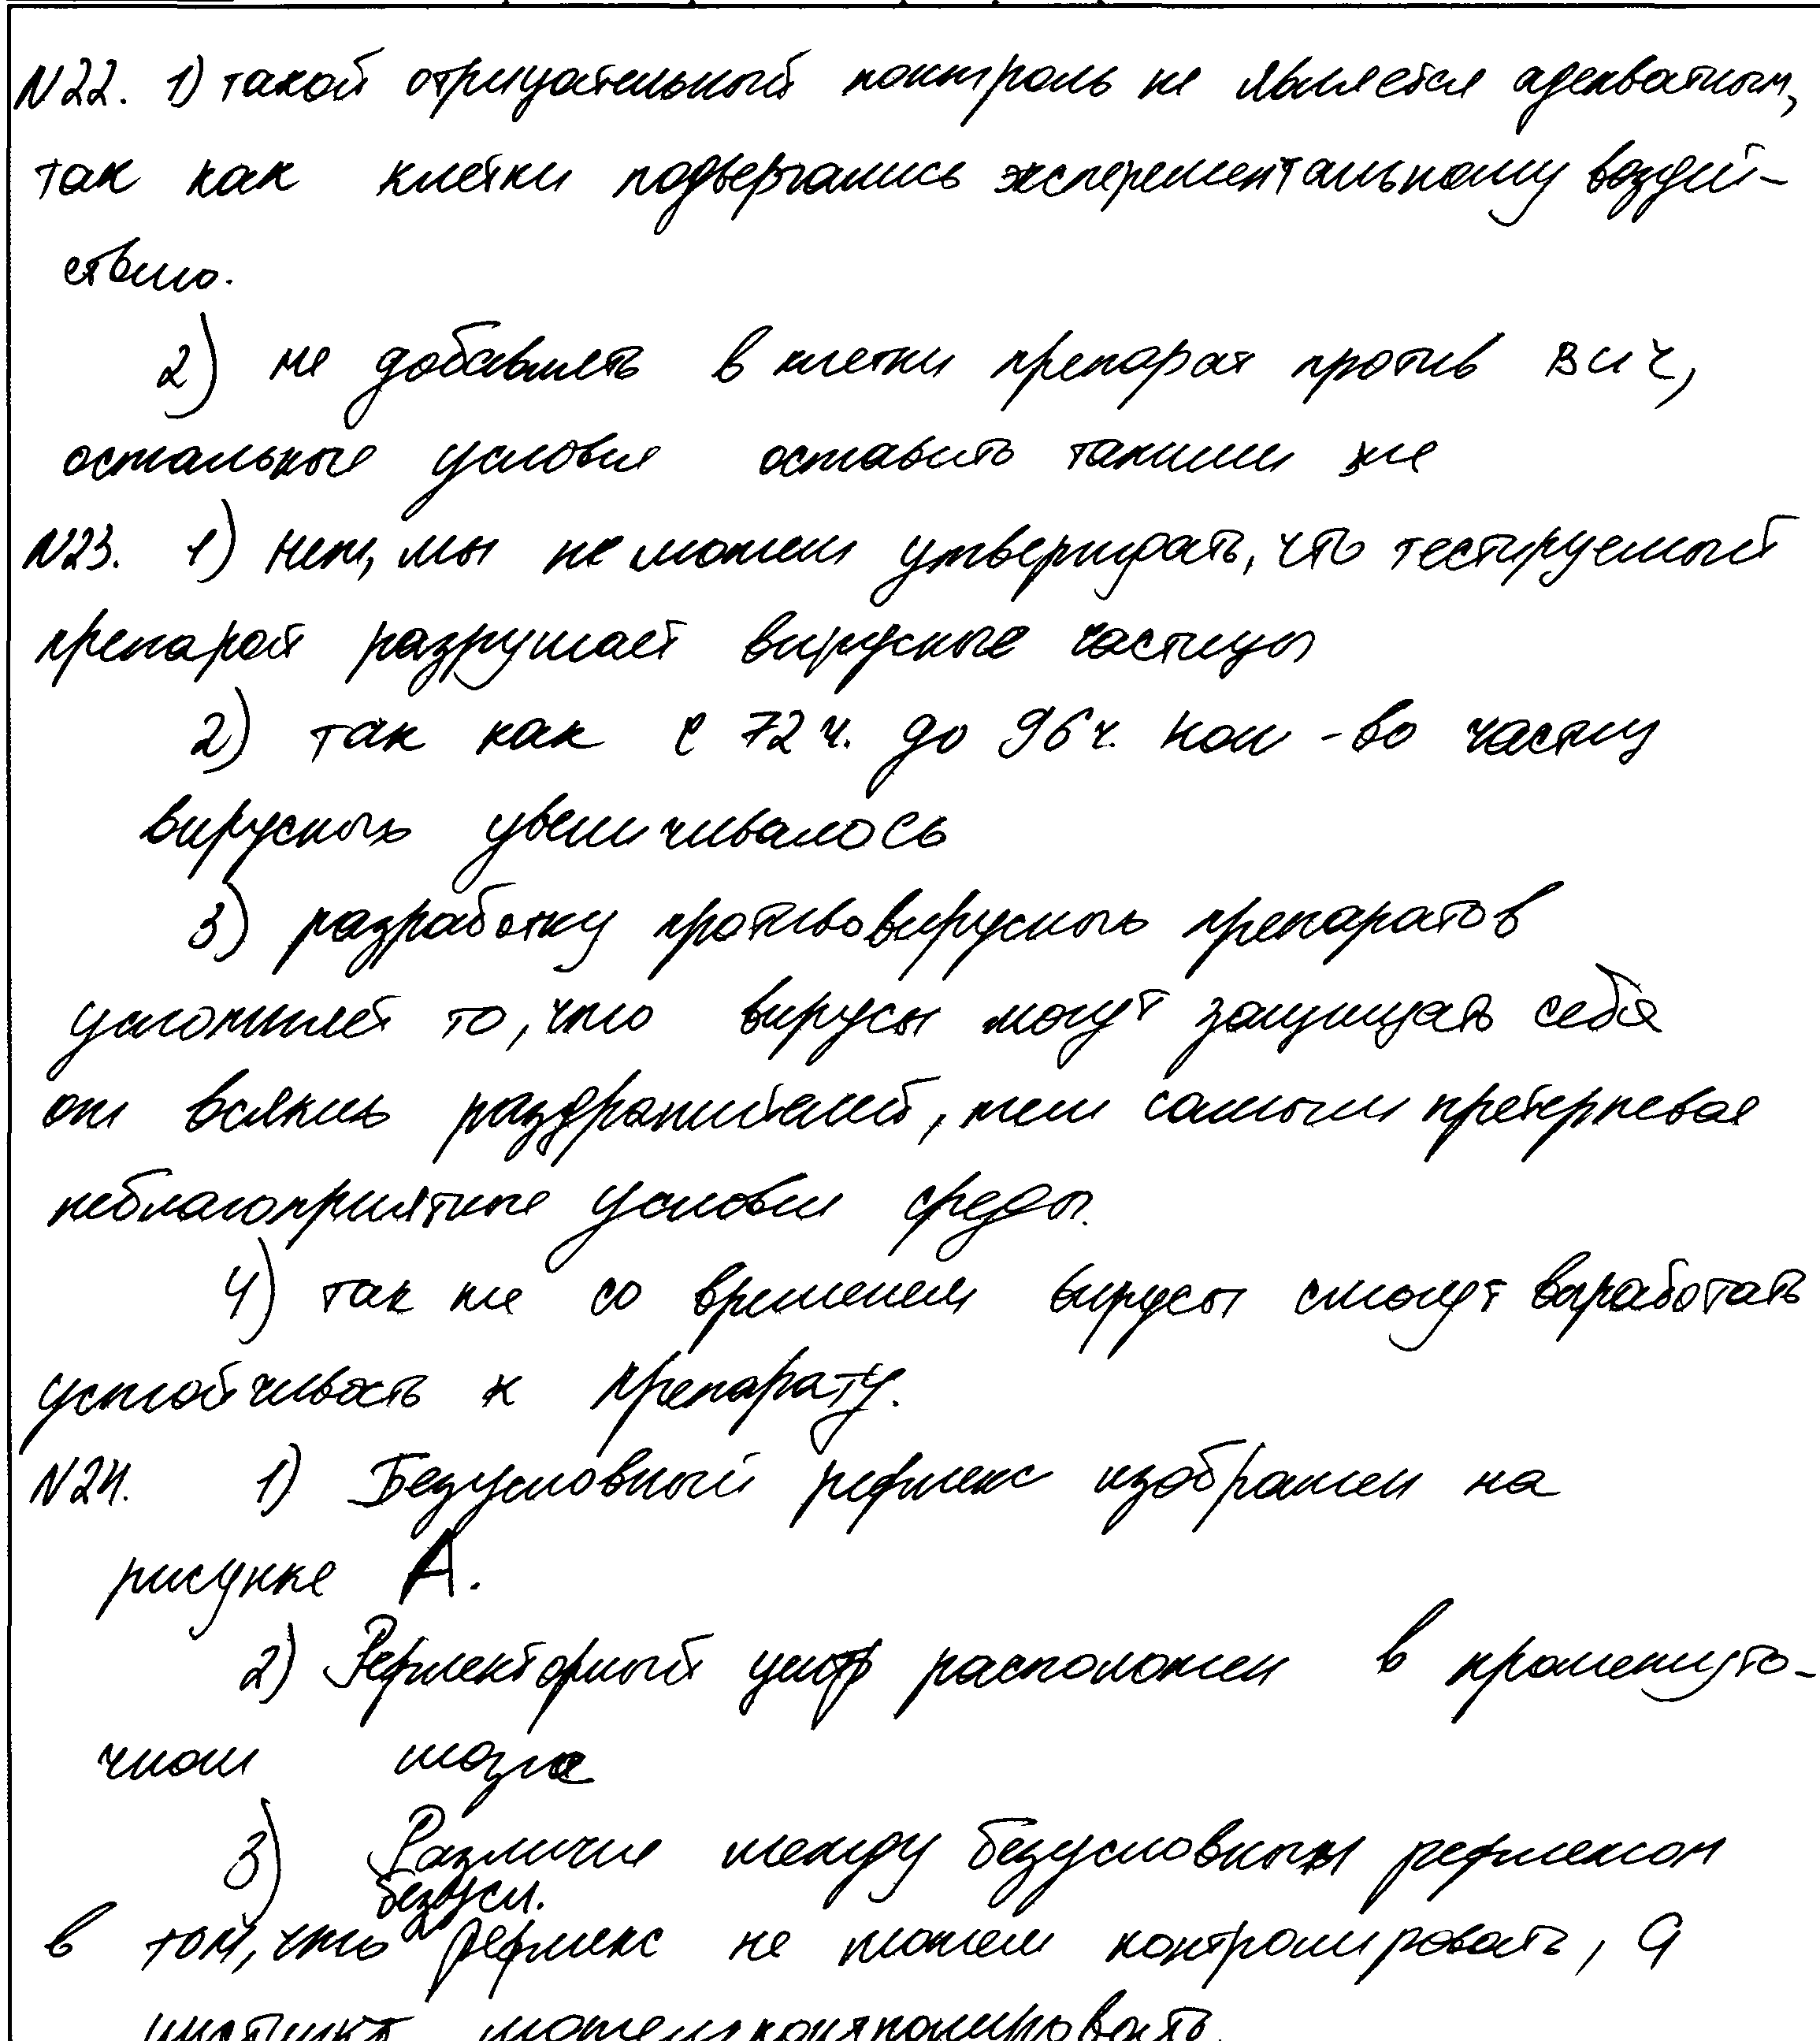 N22. 1) такой отрицательный контроль не является адекватным,
так как клетки подвергались эксперементальному воздей-
ствию.
2) не добавлять в клетки препарат против ВИЧ,
остальные условия оставить такими же
N23. 1) нет, мы не можем утверждать, что тестируемый
препарат разрушает вирусные частицы
2) так как с 72 ч. до 96 ч. кол-во частиц
вирусных увеличивалось
3) разработку противовирусных препаратов
усложняет то, что вирусы могут защищать себя
от всяких раздражителей, тем самым претерпевая
неблагоприятные условия среды.
4) так же со временем вирусы смогут выработать
устойчивость к препарату.
N24. 1) Безусловный рефлекс изображен на
рисунке А.
2) Рефлекторный центр расположен в промежуто-
чном мозге
3) Различие между безусловным рефлексом
безусл.
в том, что рефлекс не можем контролировать, а
инстинкт можем контролировать.